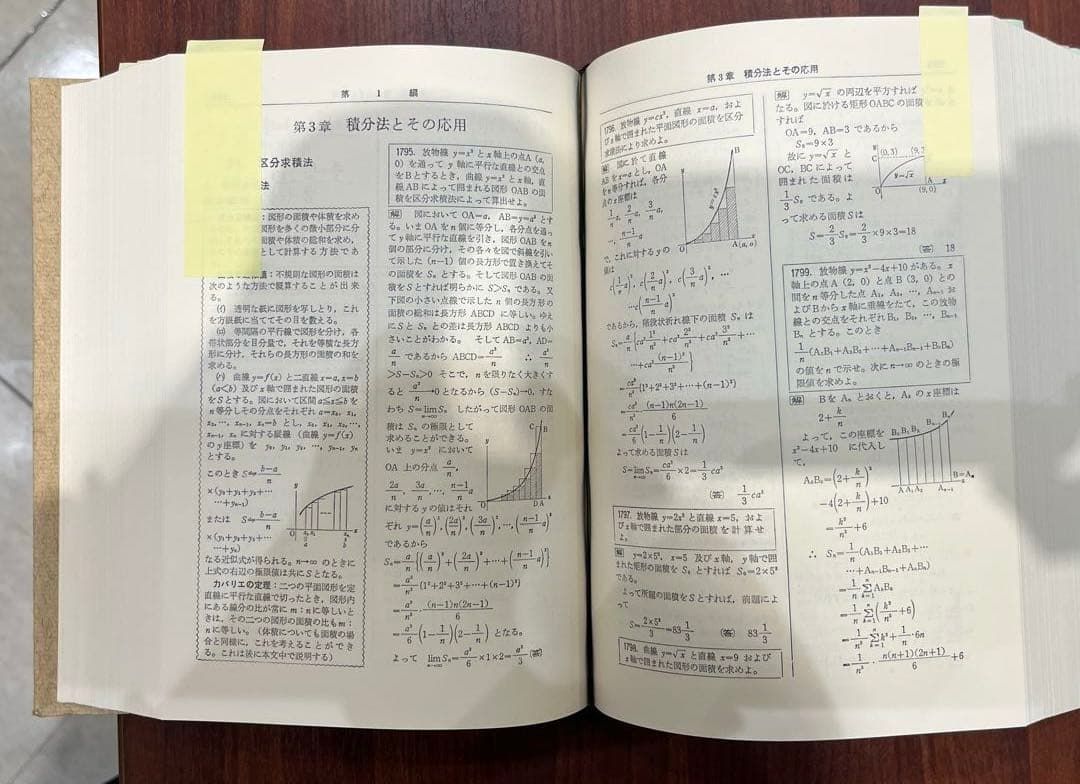 第 1 編
第3章 積分法とその応用
区分求積法
法
：図形の面積や体積を求め
図形を多くの微小部分に分
面積や体積の総和を求め，
として計算する方法であ
：不規則な図形の面積は
次のような方法で概算することが出来
る。
(イ) 透明な紙に図形を写しとり，これ
を方眼紙に当ててその目を数える。
(ロ) 等間隔の平行線で図形を分け，各
帯状部分を目分量で，それを等積な長方
形に分け，それらの長方形の面積の和を
求める。
(ハ) 曲線 y=f(x) と二直線 x=a, x=b
(a<b) 及び x 軸で囲まれた図形の面積
をSとする。図において区間 a≦x≦b を
n 等分しその分点をそれぞれ a=x₀, x₁,
x₂, …, xₙ₋₁, xₙ=b とし，x₀, x₁, x₂, …,
xₙ₋₁, xₙ に対する縦線（曲線 y=f(x)
の y 座標）を y₀, y₁, y₂, …, yₙ₋₁, yₙ
とする。
このとき S≒(b−a)/n
×(y₀+y₁+y₂+…
…+yₙ₋₁)
または S≒(b−a)/n
×(y₁+y₂+y₃+…
…+yₙ)
なる近似式が得られる。n→∞ のときに
上式の右辺の極限値は共に S となる。
カバリエの定理：二つの平面図形を定
直線に平行な直線で切ったとき，図形内
にある線分の比が常に m：n に等しいと
きは，その二つの図形の面積の比も m：
n に等しい。（体積についても面積の場
合と同様に，これを考えることができ
る。これは後に本文中で説明する）
1795. 放物線 y=x² と x 軸上の点A (a,
0) を通って y 軸に平行な直線との交点
をBとするとき，曲線 y=x² と x 軸，直
線 AB によって囲まれる図形 OAB の面
積を区分求積法によって算出せよ。
解 図において OA=a, AB=y=a² とす
る。いま OA を n 個に等分し，各分点を通っ
て y 軸に平行な直線を引き，図形 OAB を n
個の部分に分け，その各々を図で斜線を引い
て示した (n−1) 個の長方形で置き換えてそ
の面積を Sₙ とする。そして図形 OAB の面
積を S とすれば明らかに S>Sₙ である。又
下図の小さい点線で示した n 個の長方形の
面積の総和は長方形 ABCD に等しい。ゆえ
に S と Sₙ との差は長方形 ABCD よりも小
さいことがわかる。 そして AB=a², AD=
a/n であるから ABCD=a³/n ∴ a³/n
>S−Sₙ>0 そこで，n を限りなく大きくす
ると a³/n→0 となるから (S−Sₙ)→0, すな
わち S=lim(n→∞) Sₙ したがって図形 OAB の面
積は Sₙ の極限として
求めることができる。
いま y=x² において
OA 上の分点 a/n,
2a/n, 3a/n, …, (n−1)/n a
に対する y の値はそれ
ぞれ y=(a/n)², (2a/n)², (3a/n)², …, ((n−1)/n a)²
であるから
Sₙ=a/n{(a/n)²+(2a/n)²+…+((n−1)/n a)²}
=a³/n³(1²+2²+3²+…+(n−1)²)
=a³/n³·(n−1)n(2n−1)/6
=a³/6(1−1/n)(2−1/n) となる。
よって lim(n→∞) Sₙ=a³/6×1×2=a³/3 (答)
C B
O D A x
第3章 積分法とその応用
1796. 放物線 y=cx², 直線 x=a, およ
び x 軸で囲まれた平面図形の面積を区分
求積法により求めよ。
解 図に於て直線
AB を x=a とし，OA
を n 等分すれば，各分
点の x 座標は
1/n a, 2/n a, 3/n a,
…, (n−1)/n a
で，これに対する y の
値は
y=cx²
B
O A(a,o)
c(1/n a)², c(2/n a)², c(3/n a)², …
…c((n−1)/n a)²
であるから，階段状折れ線下の面積 Sₙ は
Sₙ=a/n{ca² 1²/n²+ca² 2²/n²+ca² 3²/n²+…
…+ca²((n−1)/n)²}
=ca³/n³{1²+2²+3²+…+(n−1)²}
=ca³/n³·(n−1)n(2n−1)/6
=ca³/6(1−1/n)(2−1/n)
よって求める面積 S は
S=lim(n→∞) Sₙ=ca³/6×2=1/3 ca³
(答) 1/3 ca³
1797. 放物線 y=2x² と直線 x=5, およ
び x 軸で囲まれた部分の面積を計算せ
よ。
解 y=2×5², x=5 及び x 軸，y 軸で囲
まれた矩形の面積を S₀ とすれば S₀=2×5³
である。
よって所題の面積を S とすれば，前題によ
って
S=2×5³/3=83 1/3 (答) 83 1/3
1798. 曲線 y=√x と直線 x=9 および
x 軸で囲まれた図形の面積を求めよ。
解 y=√x の両辺を平方すれば
なる。図に於ける矩形 OABC の面積
すれば
OA=9, AB=3 であるから
S₀=9×3
故に y=√x と
OC, BC によって
囲まれた面積は
1/3 S₀ である。よ
って求める面積 S は
C (0,3) (9,3
y=√x
A
(9,0)
S=2/3 S₀=2/3×9×3=18
(答) 18
1799. 放物線 y=x²−4x+10 がある。x
軸上の点 A (2, 0) と点 B (3, 0) との
間を n 等分した点 A₁, A₂, …, Aₙ₋₁ お
よび B から x 軸に垂線をたて，この放物
線との交点をそれぞれ B₁, B₂, …, Bₙ₋₁
Bₙ とする。このとき
1/n(A₁B₁+A₂B₂+…+Aₙ₋₁Bₙ₋₁+BₙB)
の値を n で示せ。次に n→∞ のときの極
限値を求めよ。
解 B を Aₙ とおくと，Aₖ の x 座標は
2+k/n
よって，この座標を
x²−4x+10 に代入し
て，
AₖBₖ=(2+k/n)²
−4(2+k/n)+10
=k²/n²+6
B₀ B₁ B₂ Bₙ₋₁
A A₁ A₂ Aₙ₋₁ B=Aₙ
∴ Sₙ=1/n(A₁B₁+A₂B₂+…
…+Aₙ₋₁Bₙ₋₁+AₙBₙ)
=1/n Σ(k=1→n) AₖBₖ
=1/n Σ(k=1→n)(k²/n²+6)
=1/n³ Σ(k=1→n) k²+1/n·6n
=1/n³·n(n+1)(2n+1)/6+6